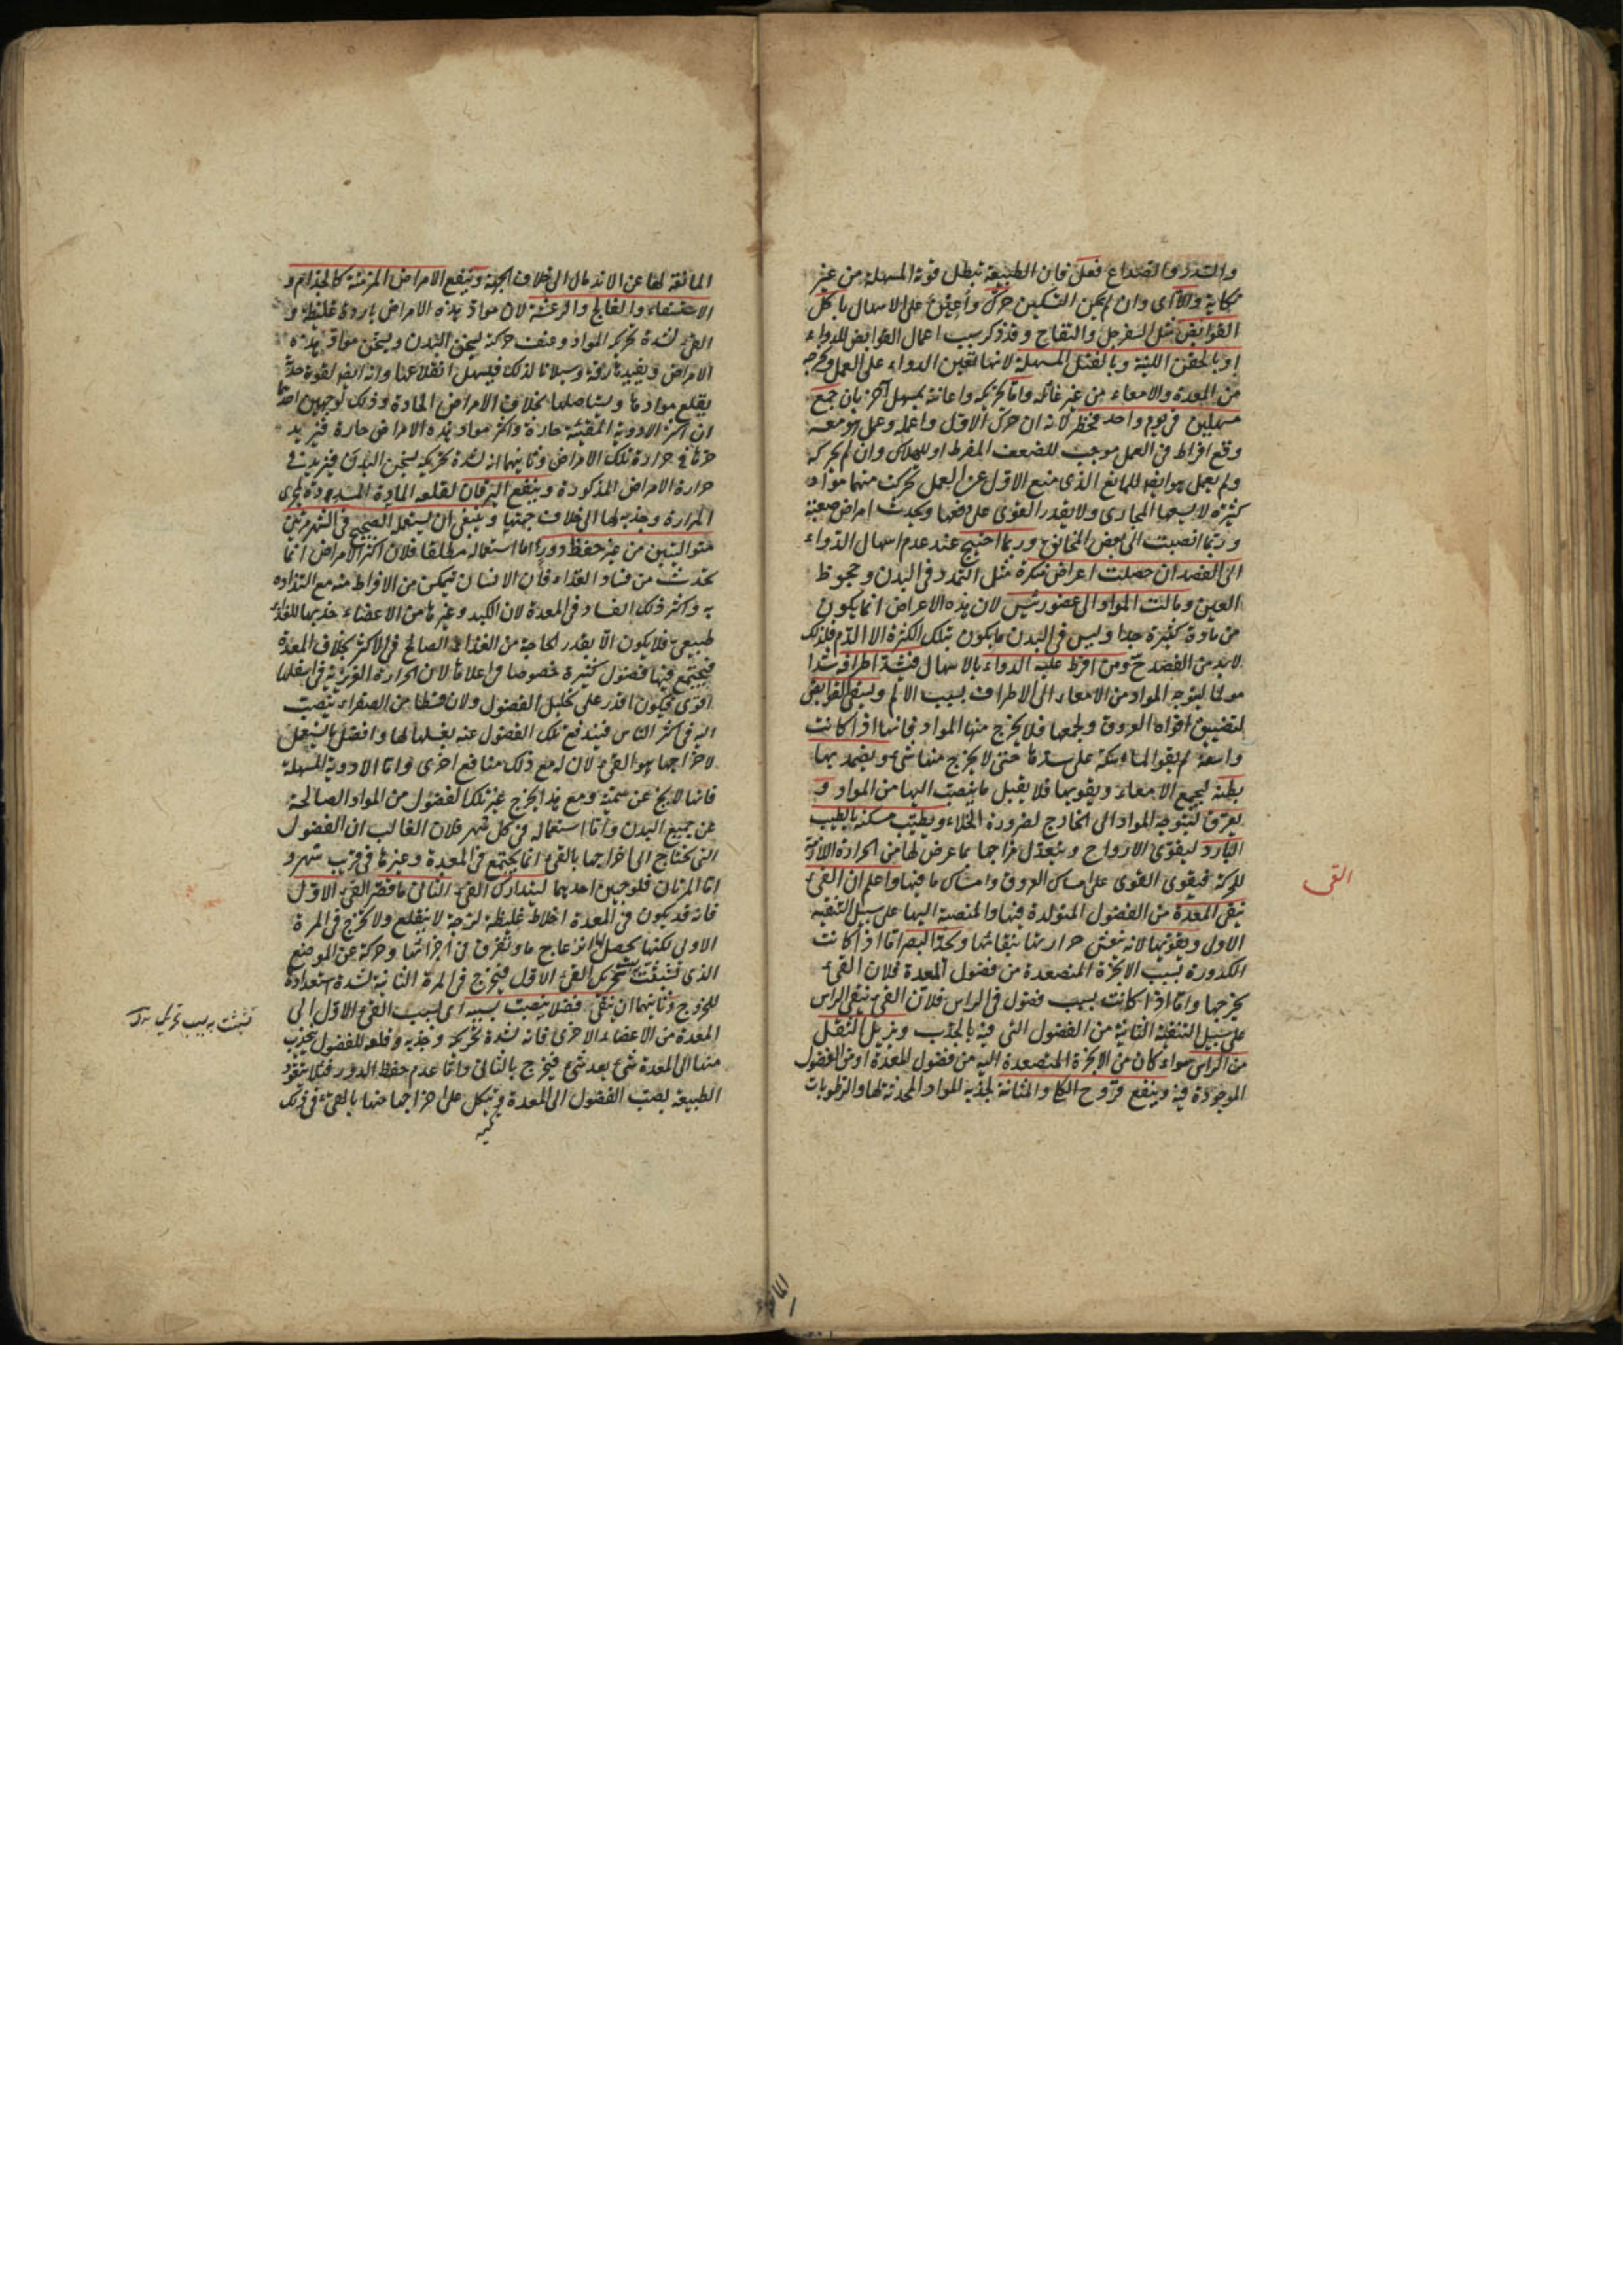 والسدر والصداع فعل فان الطبيعة تبطل قوة المسهل من غير
نكاية والا اى وان لم يكن التسكين حرك وأعين على الاسهال باكل
القوابض مثل السفرجل والتفاح وقد ذكر سبب اعمال القوابض للدواء
او بالحقن اللينة وبالفتل المسهلة لانها تعين الدواء على العمل وتخرجه
من المعدة والامعاء من غير غائلة واما تحريكه واعانته بمسهل آخر بان جمع
مسهلين فى يوم واحد فخطر لانه ان حرك الاول واعمله وعمل هو معه
وقع افراط فى العمل موجب للضعف المفرط او للهلاك وان لم يحركه
ولم يعمل هو ايضا للمانع الذى منع الاول عن العمل تحركت منهما مواد
كثيرة لا يسعها المجارى ولا يقدر القوى على دفعها ويحدث امراض صعبة
وربما انصبت الى بعض المخانق وربما احتيج عند عدم اسهال الدواء
الى الفصد ان حصلت اعراض منكرة مثل التمدد فى البدن وجحوظ
العين ومالت المواد الى عضو رئيس لان هذه الاعراض انما يكون
من مادة كثيرة جدا وليس فى البدن ما يكون بتلك الكثرة الا الدم فلذلك
لا بد من الفصد ح ومن افرط عليه الدواء بالاسهال فيشد اطرافه شدا
مولما ليتوجه المواد من الامعاء الى الاطراف بسبب الالم ويسقى القوابض
لتضييق افواه العروق وجمعها فلا يخرج منها المواد فانها اذا كانت
واسعة لم يقو الماسكة على سدها حتى لا يخرج منها شئ ويضمد بها
بطنه ليجمع الامعاء ويقويها فلا يقبل ما ينصب اليها من المواد و
يعرق ليتوجه المواد الى الخارج لضرورة الخلاء ويطيب مسكنه بالطيب
البارد ليقوى الارواح ويتعدل مزاجها بما عرض لها من الحرارة اللازمة
للحركة فيقوى القوى على امساك العروق وامساك ما فيها واعلم ان القئ
ينقى المعدة من الفضول المتولدة فيها والمنصبة اليها على سبيل التنقية
الاول ويقويها لانه ينعش حرارتها بنقائها ويحد البصر اما اذا كانت
الكدورة بسبب الابخرة المتصعدة من فضول المعدة فلان القئ
يخرجها واما اذا كانت بسبب فضول فى الراس فلان القئ ينقى الراس
على سبيل التنقية الثانية من الفضول التى فيه بالجذب ويزيل الثقل
من الراس سواء كان من الابخرة المتصعدة اليه من فضول المعدة او من الفضول
الموجودة فيه وينفع قروح الكلا والمثانة لجذبه المواد المحدثة لها والرطوبات
القى
المانعة لها عن الاندمال الى خلاف الجهة وينفع الامراض المزمنة كالجذام و
الاستسقاء والفالج والرعشة لان مواد هذه الامراض باردة غليظة و
القئ لشدة تحريكه المواد وعنف حركته يسخن البدن ويسخن مواد هذه
الامراض ويفيدها رقة وسيلانا لذلك فيسهل انقلاعها وانه ايضا لقوة جذبه
يقلع موادها ويستاصلها بخلاف الامراض الحادة وذلك لوجهين احدهما
ان اكثر الادوية المقيئة حارة واكثر مواد هذه الامراض حارة فيزيد
حرها فى حرارة تلك الامراض وثانيهما انه لشدة تحريكه يسخن البدن فيزيد فى
حرارة الامراض المذكورة وينفع اليرقان لقلعه المادة المسددة لمجرى
المرارة وجذبه لها الى خلاف جهتها وينبغى ان يستعمله الصحيح فى الشهر مرتين
متواليتين من غير حفظ دور اما استعماله مطلقا فلان اكثر الامراض انما
يحدث من فساد الغذاء فان الانسان يتمكن من الافراط منه مع التذاذه
به واكثر ذلك الفساد فى المعدة لان الكبد وغيرها من الاعضاء جذبها للغذاء
طبيعى فلا يكون الا بقدر الحاجة من الغذاء الصالح فى الاكثر بخلاف المعدة
فيجتمع فيها فضول كثيرة خصوصا فى اعلاها لان الحرارة الغريزية فى اسفلها
اقوى فيكون اقدر على تحليل الفضول ولان قسطا من الصفراء ينصب
اليه فى اكثر الناس فيندفع تلك الفضول عنه بغسلها لها وافضل ما يستعمل
لاخراجها هو القئ لان له مع ذلك منافع اخرى واما الادوية المسهلة
فانها لا يخ عن سمية ومع هذا يخرج غير تلك الفضول من المواد الصالحة
عن جميع البدن واما استعماله فى كل شهر فلان الغالب ان الفضول
التى يحتاج الى اخراجها بالقئ انما يجتمع فى المعدة وغيرها فى قريب شهر و
اما المرتان فلوجهين احديهما ليتدارك القئ الثانى ما قصر القئ الاول
فانه قد يكون فى المعدة اخلاط غليظة لزجة لا ينقلع ولا يخرج فى المرة
الاولى لكنها يحصل لها انزعاج ما وتفرق فى اجزائها وحركة عن الموضع
الذى تشبثت بتحريك القئ الاول فيخرج فى المرة الثانية لشدة استعدادها
للخروج وثانيهما ان ينقى فضلا ينصب بسببه اى لسبب القئ الاول الى
المعدة من الاعضاء الاخرى فانه لشدة تحريكه وجذبه وقلعه للفضول يجذب
منها الى المعدة شئ بعد شئ فيخرج بالثانى واما عدم حفظ الدور فلئلا يتعود
الطبيعة بصب الفضول الى المعدة ويتكل على اخراجها منها بالقئ فى ذلك
تشبثت به بسبب تحريك